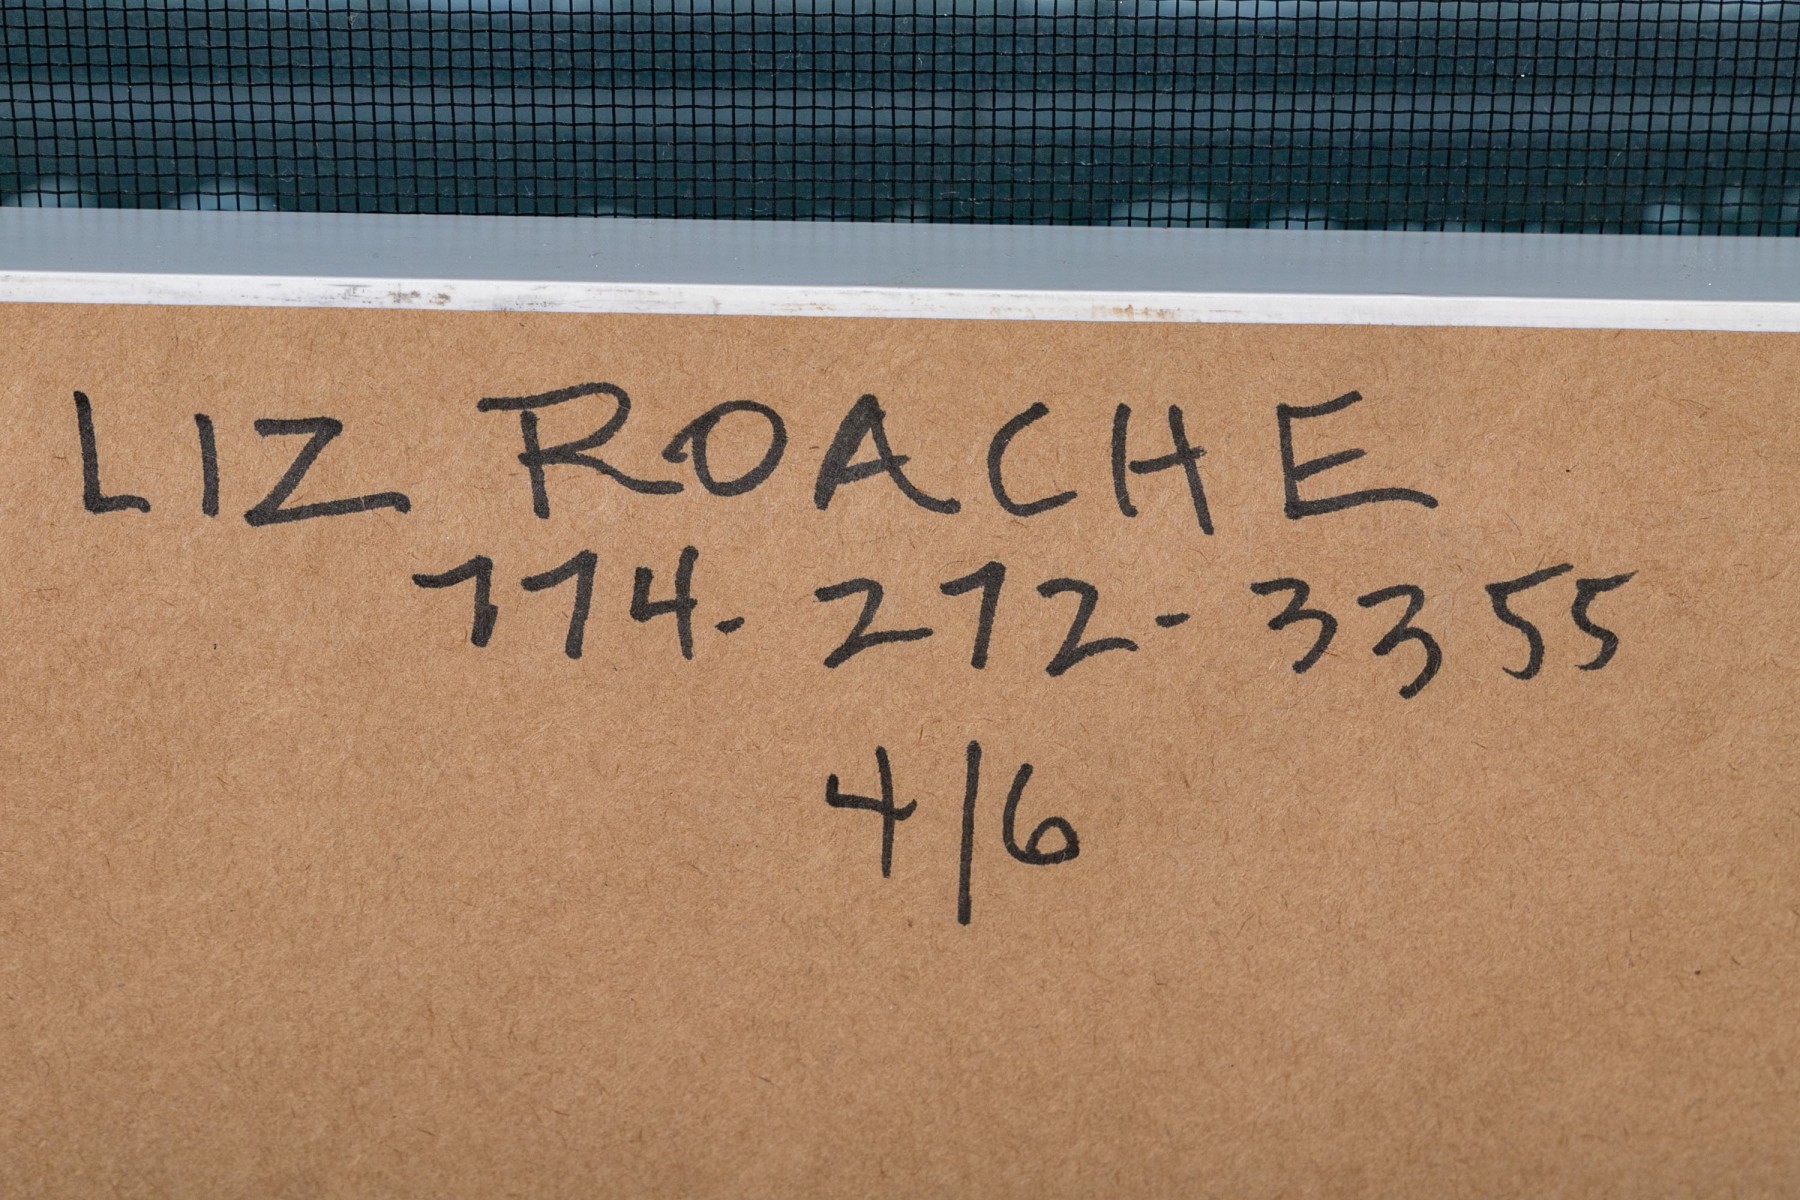 LIZ ROACHE
774. 272-3355
4/6